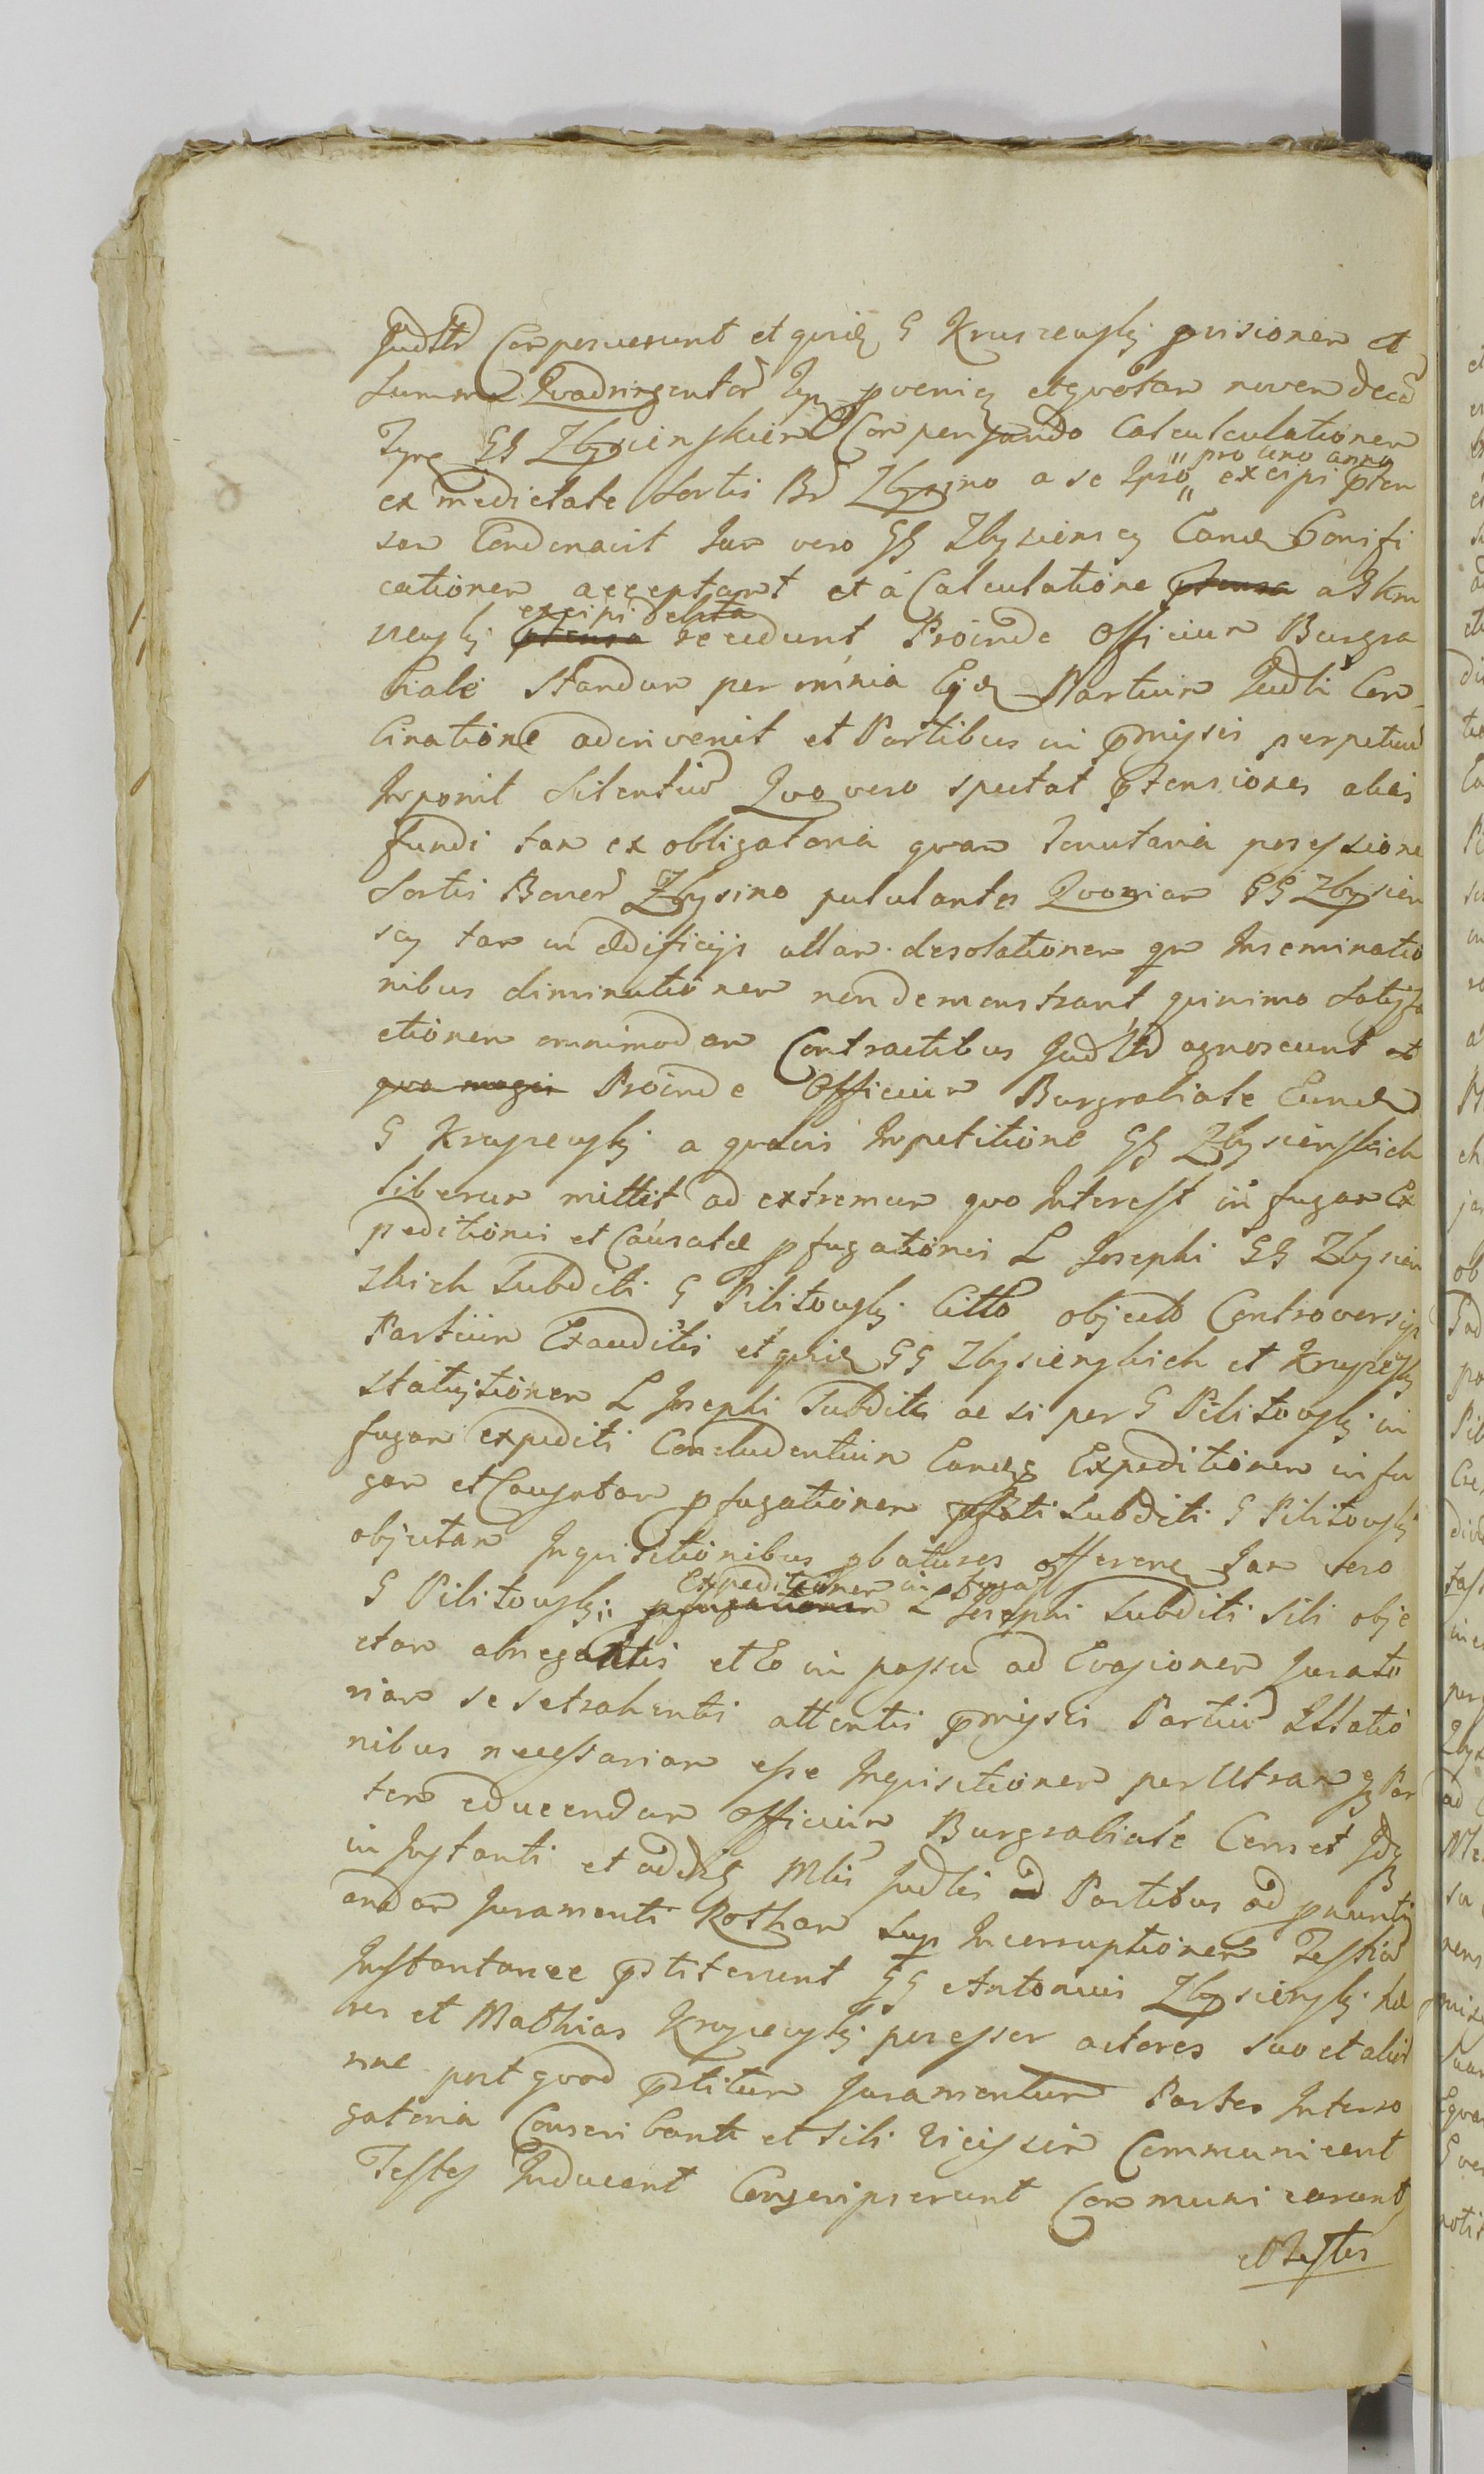 Judtr Comperuerunt et quid G Kruszewskj provisionem a
Summa Quadringentor Tym pvenien etqvotam novem decē
Tym GG Zbysienskiem Compensando Calculculationem
ex medietate Sortis Bd Zbysino a se Ipso " pro uno anno " excipi pten
sam Condonavit Jam vero GG Zbysienscy Eand Bonifi
cationem acceptant et a Calculatione ptensa a G Kru
szewskj ptensa excipi debita recedunt Proinde Officium Burgra
biale Standum per omnia Ejd Partium Judti Com
binatione adinvenit et Partibus in pmissis perpetuū
Imponit Silentiū Qvo vero spectat ptensiones alias
fundi tam ex obligatoria qvam Tenutaria possessione
Sortis Bonor Zbysino pululantes Qvoniam GG Zbysien
scy tam in Ædificijs ullam desolationem qm Inseminatio
nibus diminutionem non demonstrant, quinimo Satisfa
ctionem omnimodam Contractibus Judtr agnoscunt et
qvo magis Proinde Officium Burgrabiale Eund
G Kruszewskj a qvavis Impetitione GG Zbysienskich
liberum mittit ad extremum qvo Interest in fugam Ex
peditionis et Causatæ pfugationis L Josephi GG Zbysien
skich Subditi G Pilitowskj Citto objectæ Controversijs
Partium Exauditis et quid GG Zbysienskich et Kruszewskj
statuitionem L Josephi Subditi ac si per G Pilitowskj in
fugam expediti Concludentium Eamdq Expeditionem in fu
gam et Causatam pfugationem pfati Subditi G Pilitowskj
objectam Inquisitionibus pbaturos offeren Jam vero
G Pilitowskj " pfugationem Expeditionem in fugam L Josephi Subditi Sibi obje
ctam abnegantis et Eo in passu ad Evasionem Jurato
riam se setrahentis attentis pmissis Partiū Illatio
nibus necessariam esse Inquisitionem per Utramq Par
tem educendam Officium Burgrabiale Censet Idq
in Instanti et addit Mtis Judtis ad Partibus ad pnunti
andam Juramenti Rotham Sup Incorruptionem Testiū
Instantanee pstiterunt GG Antonius Zbysienskj hæ
res et Mathias Kruszewskj possessor actores suo et alior
nne post qvod pstitum Juramentum Partes Interro
gatoria Conscribant et Sibi vicissim Communicent
Testes Inducant Conscripserunt Communicarunt
et Testes